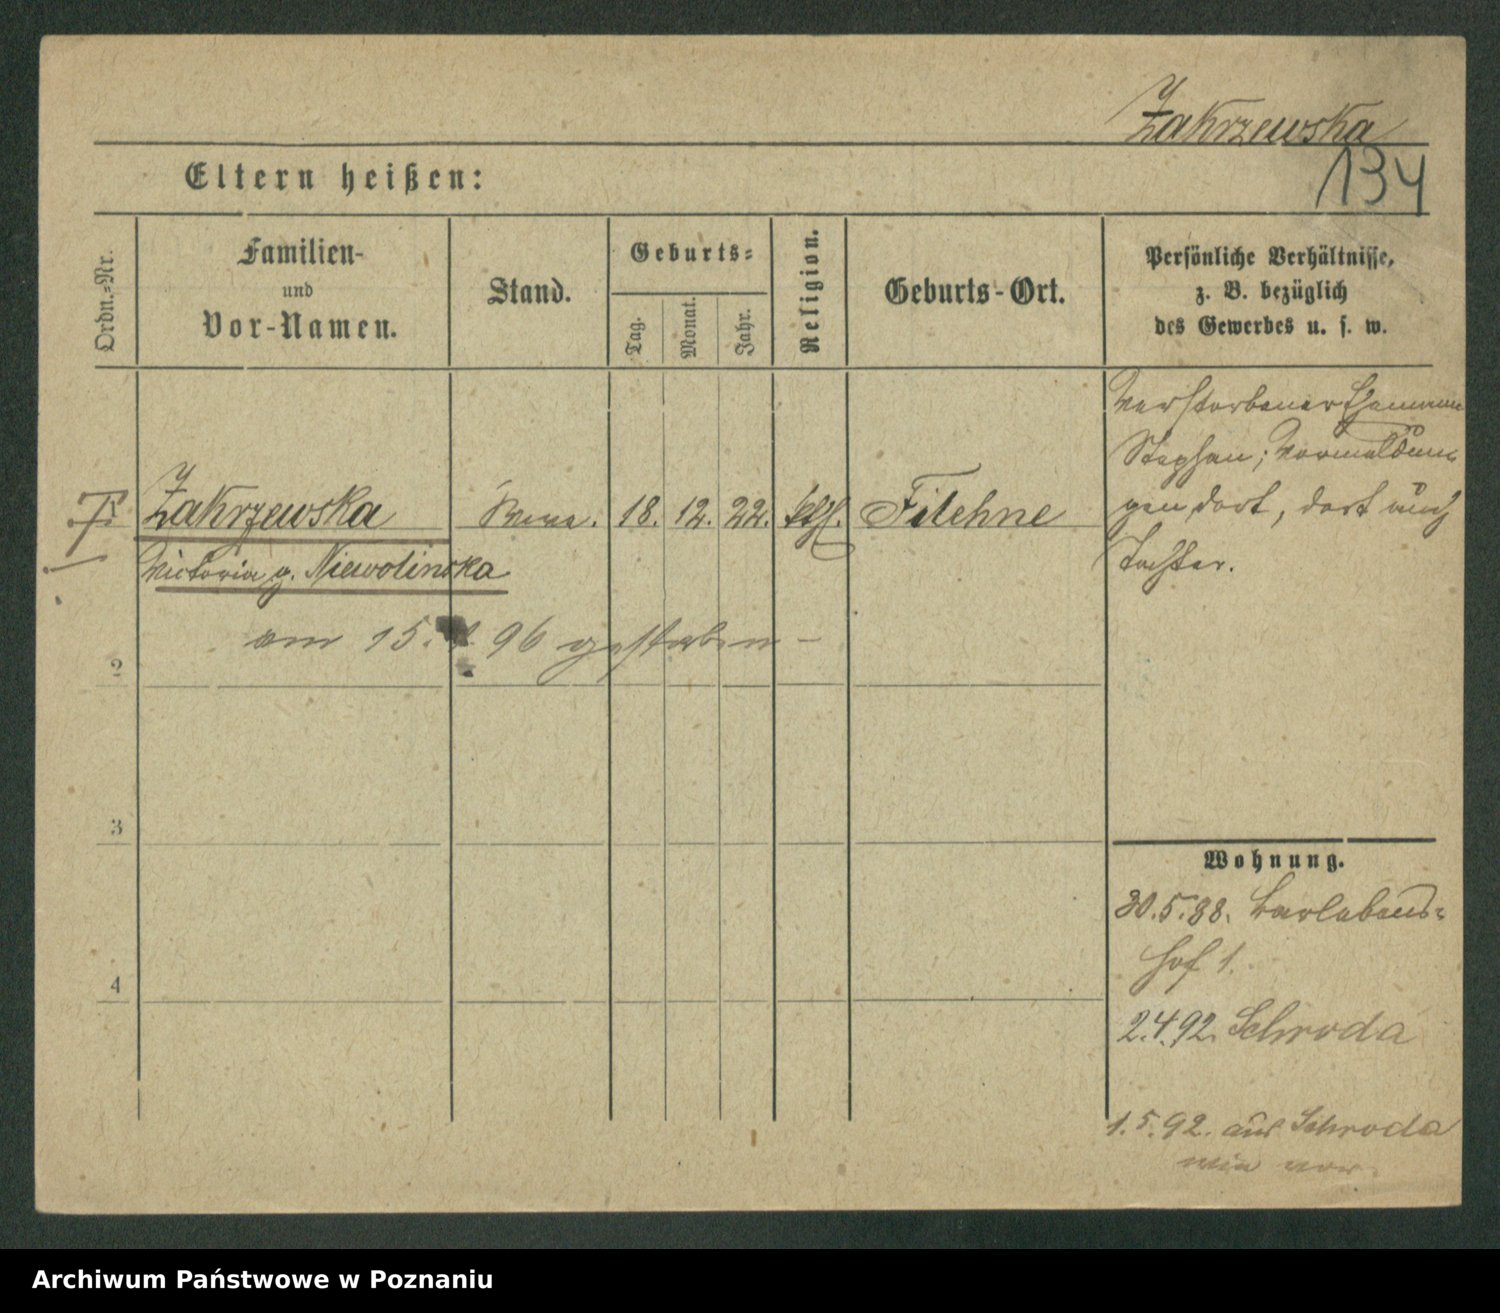 Zakrzewska
134
Eltern heißen:
Ordn.-Nr.
Familien-
und
Vor-Namen.
Stand.
Geburts-
Tag.
Monat.
Jahr.
Religion.
Geburts-Ort.
Persönliche Verhältnisse,
z. B. bezüglich
des Gewerbes u. s. w.
Zakrzewska
18. 12. 22. kth. Filehne
Victoria g. Niewolinska
am 15. 96 gestorben -
verstorbener Ehemann
Stephan; Vormeldun-
gen dort, dort auch
Tochter.
2
3
4
Wohnung.
30.5.88.
hof 1.
2.4.92. Schroda
1.5.92. aus Schroda
wie vor.
Archiwum Państwowe w Poznaniu